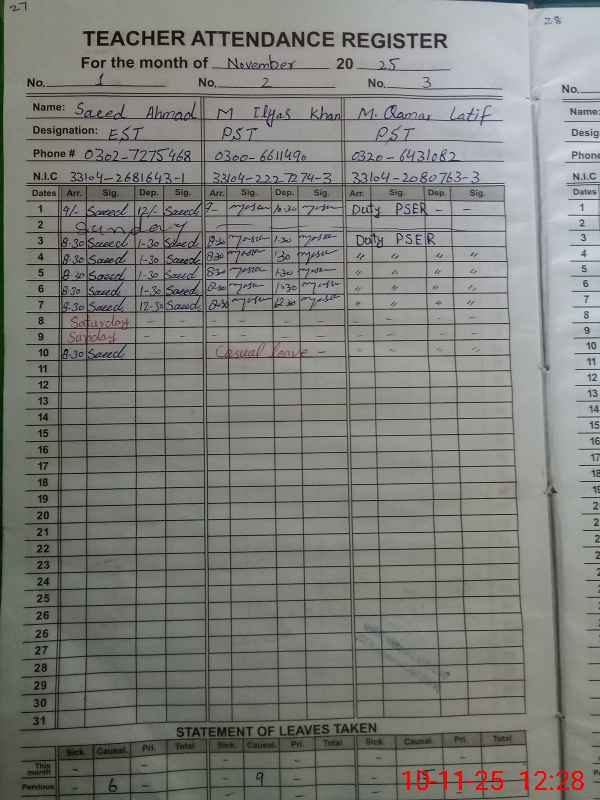 27
28
TEACHER ATTENDANCE REGISTER
For the month of November 20 25
No. 1 No. 2 No. 3
No.
Name: Saeed Ahmad M Ilyas Khan M. Qamar Latif
Name:
Designation: EST PST PST
Phone # 0302-7275468 0300-6611490 0320-6431082
Phone
N.I.C 33104-2681643-1 33104-2227274-3 33104-2080763-3
N.I.C
Dates Arr. Sig. Dep. Sig. Arr. Sig. Dep. Sig. Arr. Sig. Dep. Sig.
Dates
1 9/- Saeed 12/- Saeed 9- 10:30 Duty PSER - -
2 Sunday
3 8-30 Saeed 1-30 Saeed 8:30 1:30 Duty PSER
4 8-30 Saeed 1-30 Saeed 8:30 1:30 " " " "
5 8-30 Saeed 1-30 Saeed 8:30 1:30 " " " "
6 8-30 Saeed 1-30 Saeed 8:30 1:30 " " " "
7 8-30 Saeed 12-30 Saeed 8:30 12:30 " " " "
8 Saturday - - - - - - - - - -
9 Sunday - - - - - - - - - -
10 8-30 Saeed Casual leave - " " " "
11
12
13
14
15
16
17
18
19
20
21
22
23
24
25
26
26
27
28
29
30
31
STATEMENT OF LEAVES TAKEN
Sick. Causal. Pri. Total Sick. Causal. Pri. Total Sick. Causal. Pri. Total
This month - - - - - -
Pervious - 6 - - 9 -
10-11-25 12:28